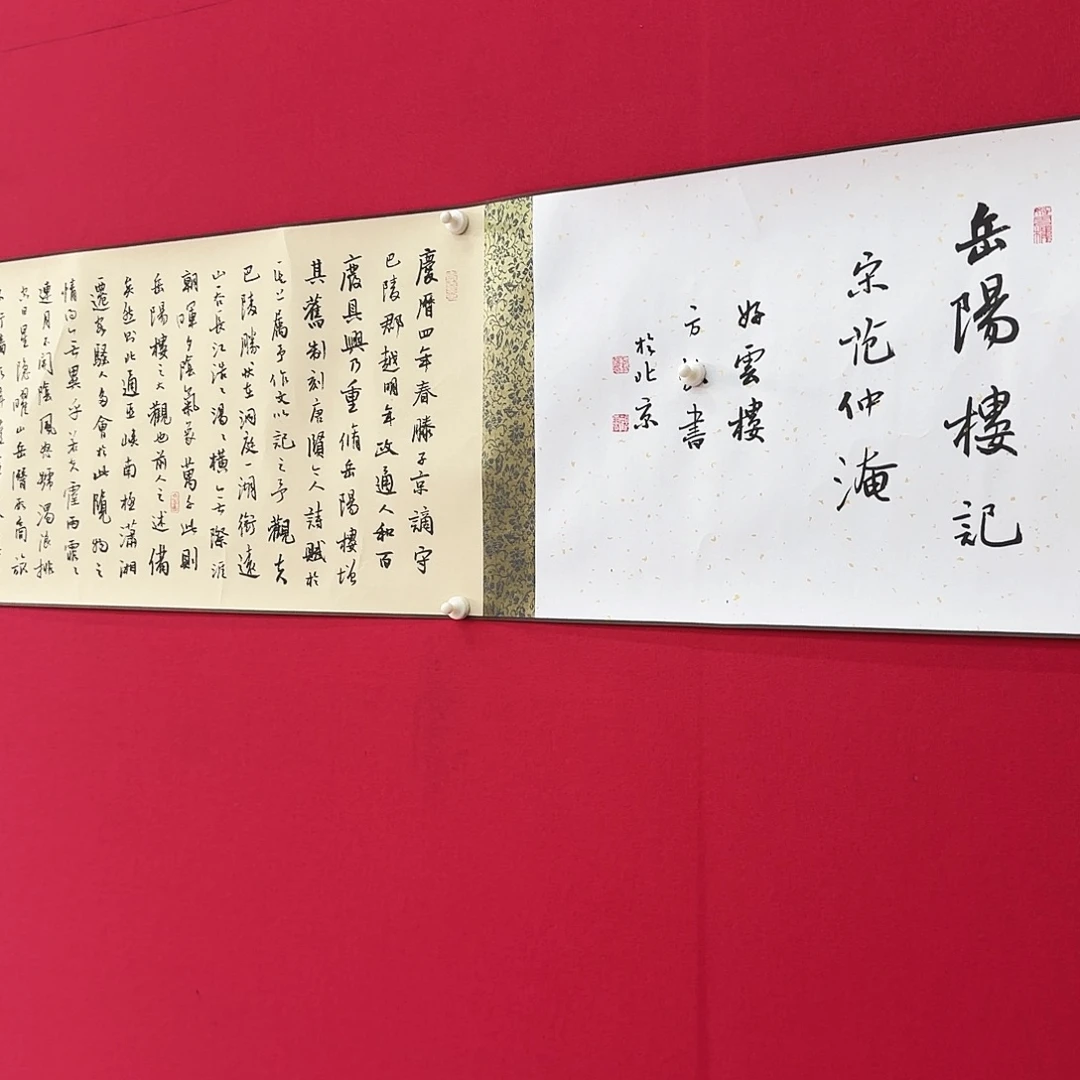 岳陽樓記
宋范仲淹
好雲樓
方 書
於北京
慶曆四年春滕子京謫守
巴陵郡越明年政通人和百
廢具興乃重脩岳陽樓增
其舊制刻唐賢今人詩賦於
其上屬予作文以記之予觀夫
巴陵勝狀在洞庭一湖銜遠
山吞長江浩浩湯湯橫無際涯
朝暉夕陰氣象萬千此則
岳陽樓之大觀也前人之述備
矣然則此通巫峽南極瀟湘
遷客騷人多會於此覽物之
情得無異乎若夫霪雨霏霏
連月不開陰風怒號濁浪排
空日星隱曜山岳潛形商旅